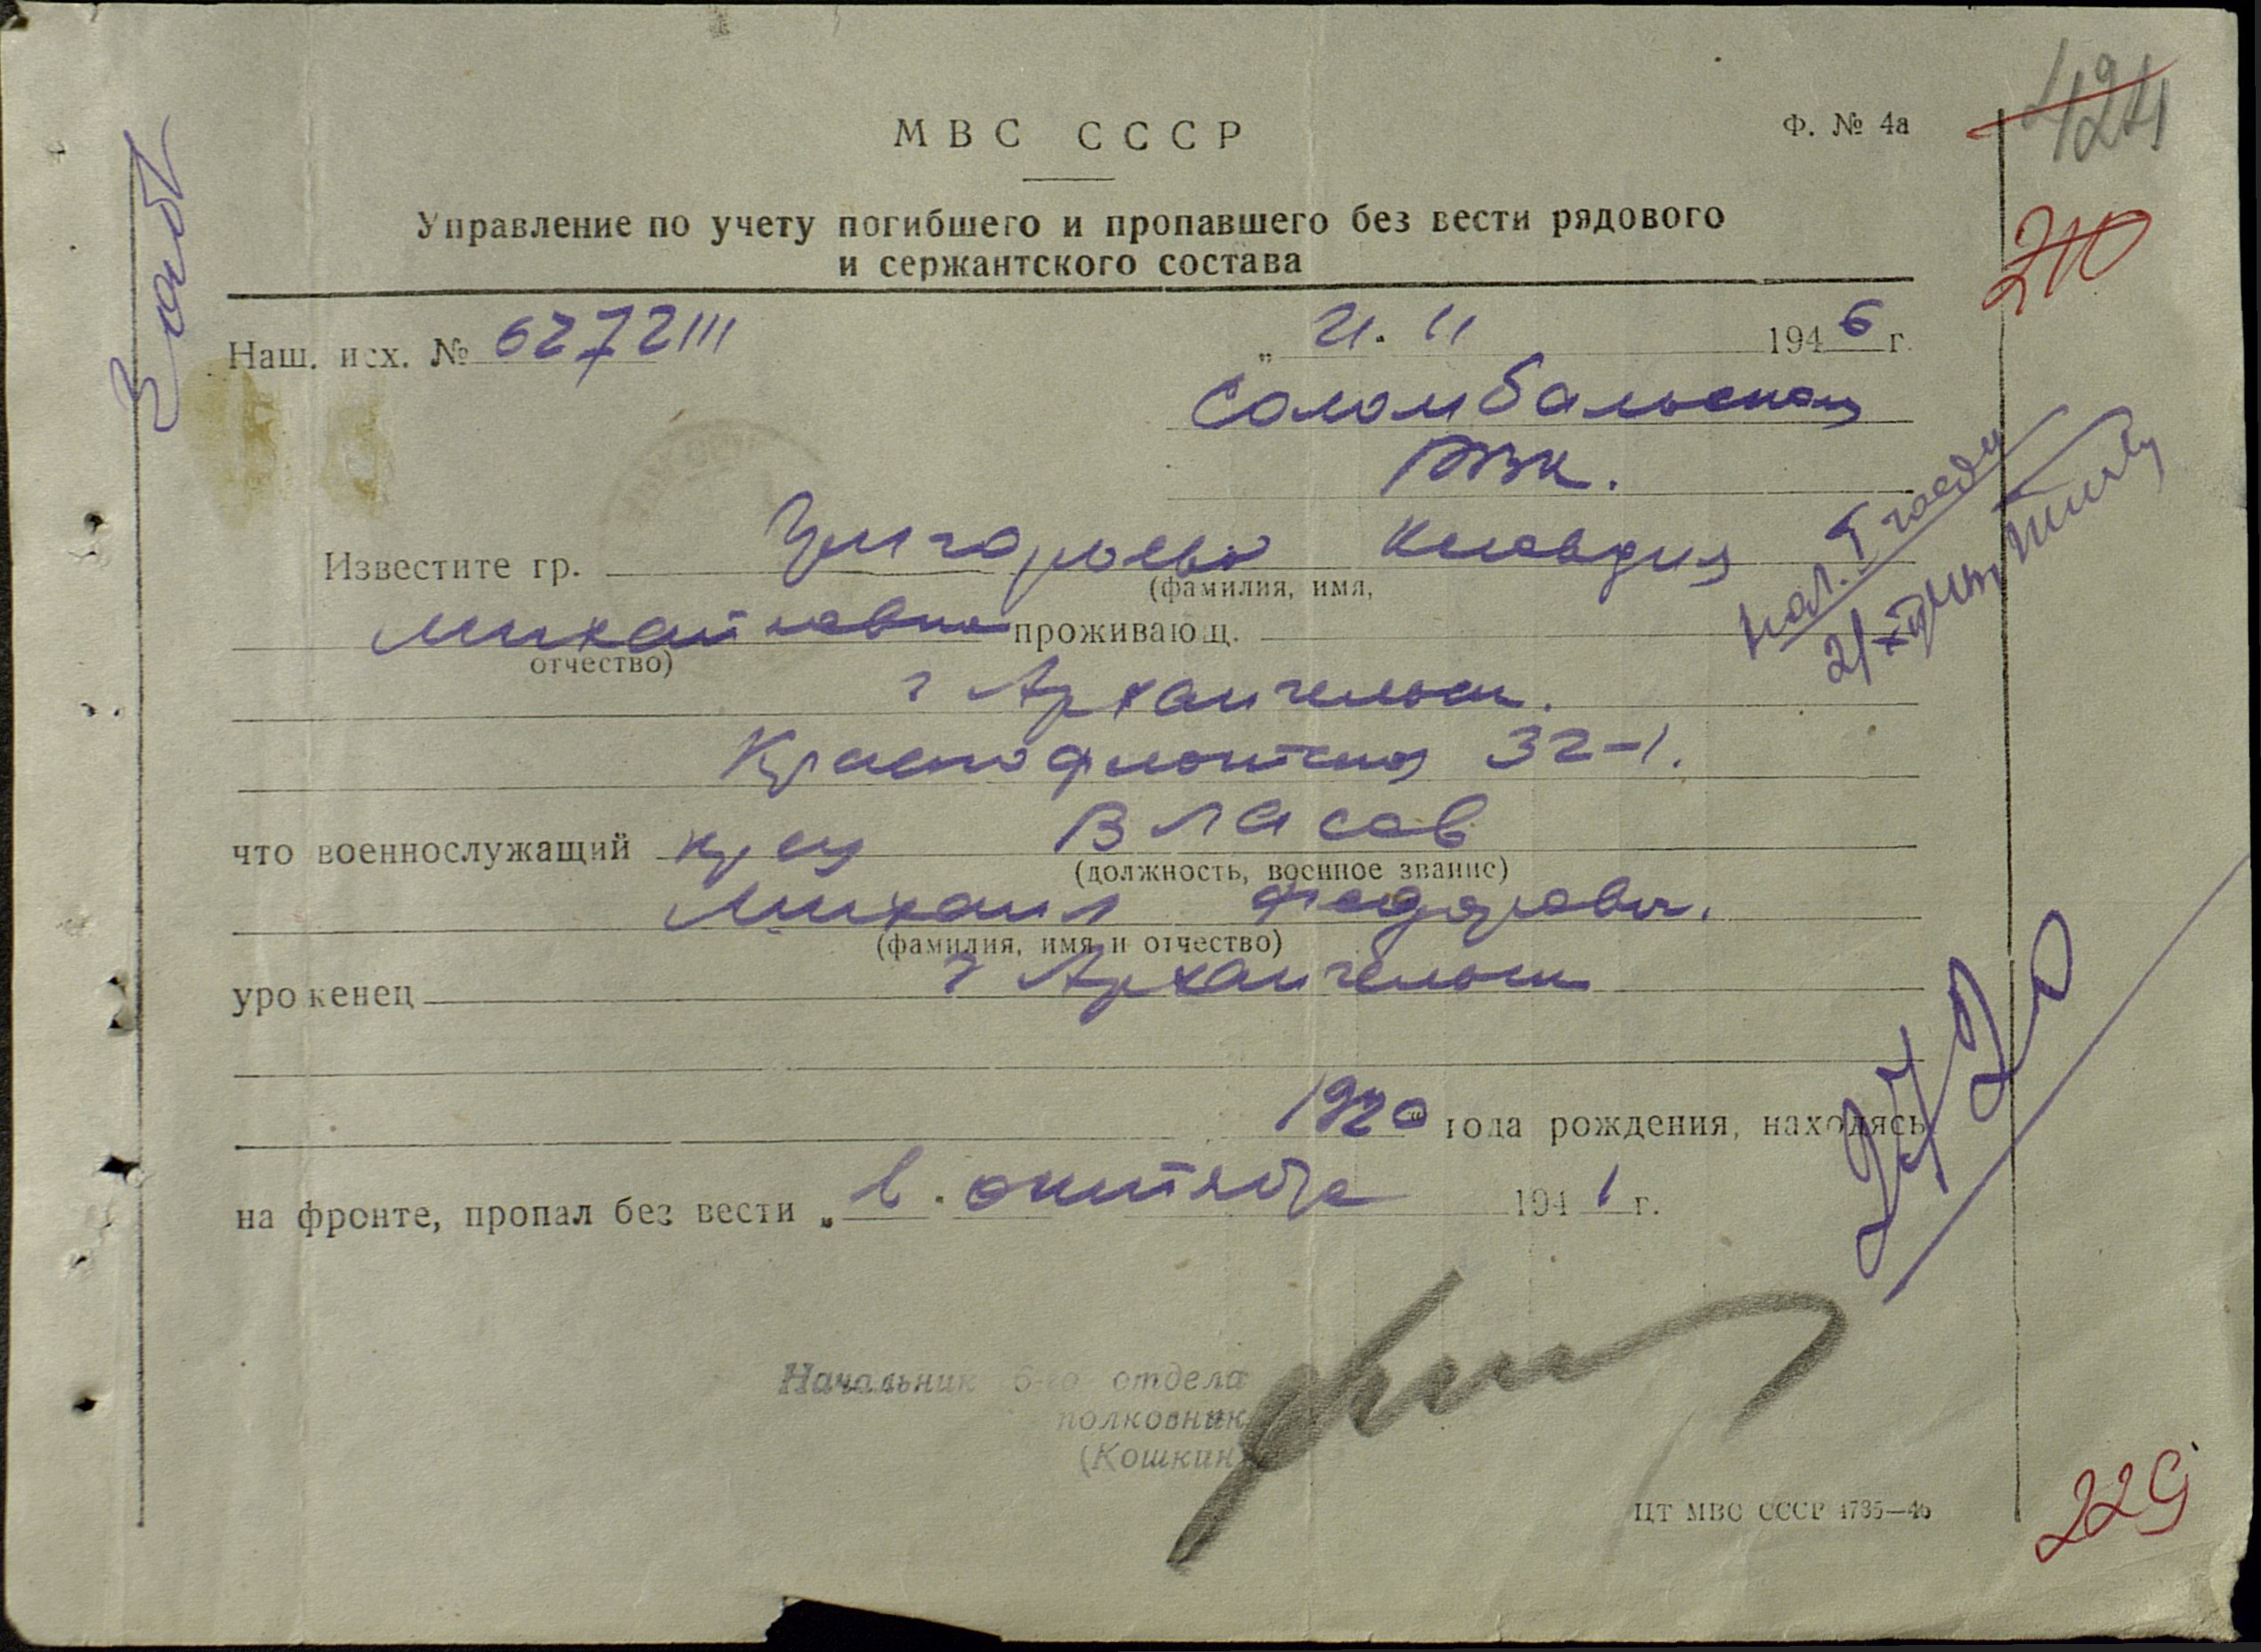 424
Ф. № 4а
МВС СССР
Управление по учету погибшего и пропавшего без вести рядового
и сержантского состава
Наш. исх. № 6272111
„ 21. 11 1946 г.
Соломбальский
РВК.
Известите гр. Григорьева Клавдия
(фамилия, имя,
Михайловна проживающ.
отчество)
г Архангельск.
Краснофлотская 32-1.
что военнослужащий кр-ец Власов
(должность, военное звание)
Михаил Федорович.
(фамилия, имя и отчество)
уроженец г Архангельск
1920 года рождения, находясь
на фронте, пропал без вести „ в. октябре 1941 г.
Начальник 6-го отдела
полковник
(Кошкин)
ЦТ МВС СССР 4735—46
229